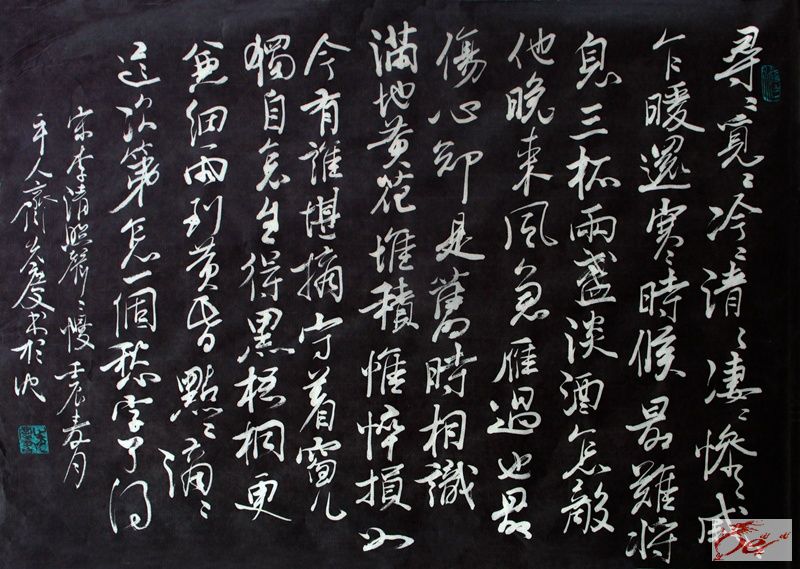 尋〻覓〻冷〻清〻凄〻慘〻戚
乍暖還寒時候最難將
息三杯兩盞淡酒怎敵
他晚来風急雁過也最
傷心却是舊時相識
滿地黄花堆積惟悴損如
今有誰堪摘守着窗兒
獨自怎生得黑梧桐更
兼細雨到黄昏點〻滴〻
這次第怎一個愁字了得
宋李清照聲〻慢壬辰春月
平人齋慶書於沈